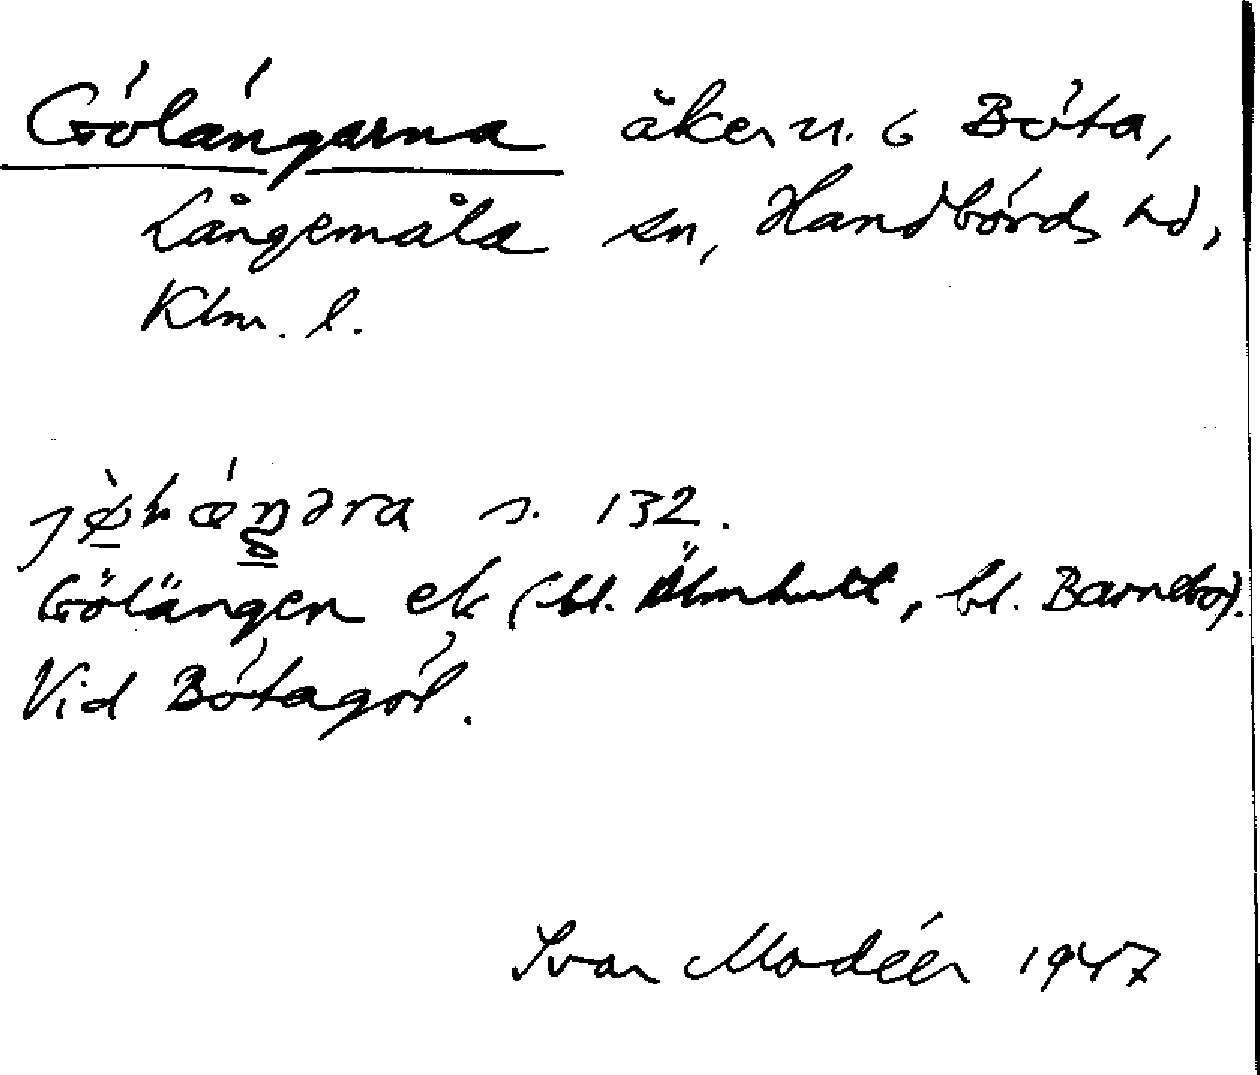 Gölängarna åker n. 6 Böta,
Långemåla sn, Handbörds hd,
Klm. l.
s. 132.
Gölängen ek (bl. Älmhult, bl. Barnebo).
Vid Bötagöl.
Ivar Modéer 1947